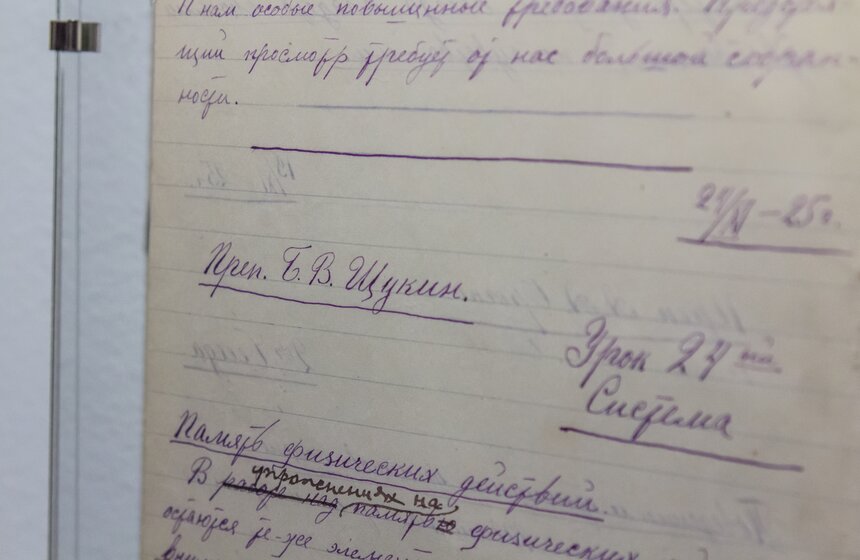 К нам особые повышенные требования. Предстоя-
щий просмотр требует от нас большой собран-
ности.
24/XI – 25 г.
Преп. Б. В. Щукин.
Урок 24 ый.
Система
Память физических действий.
В упражнениях на память физических
остаются те-же элемент